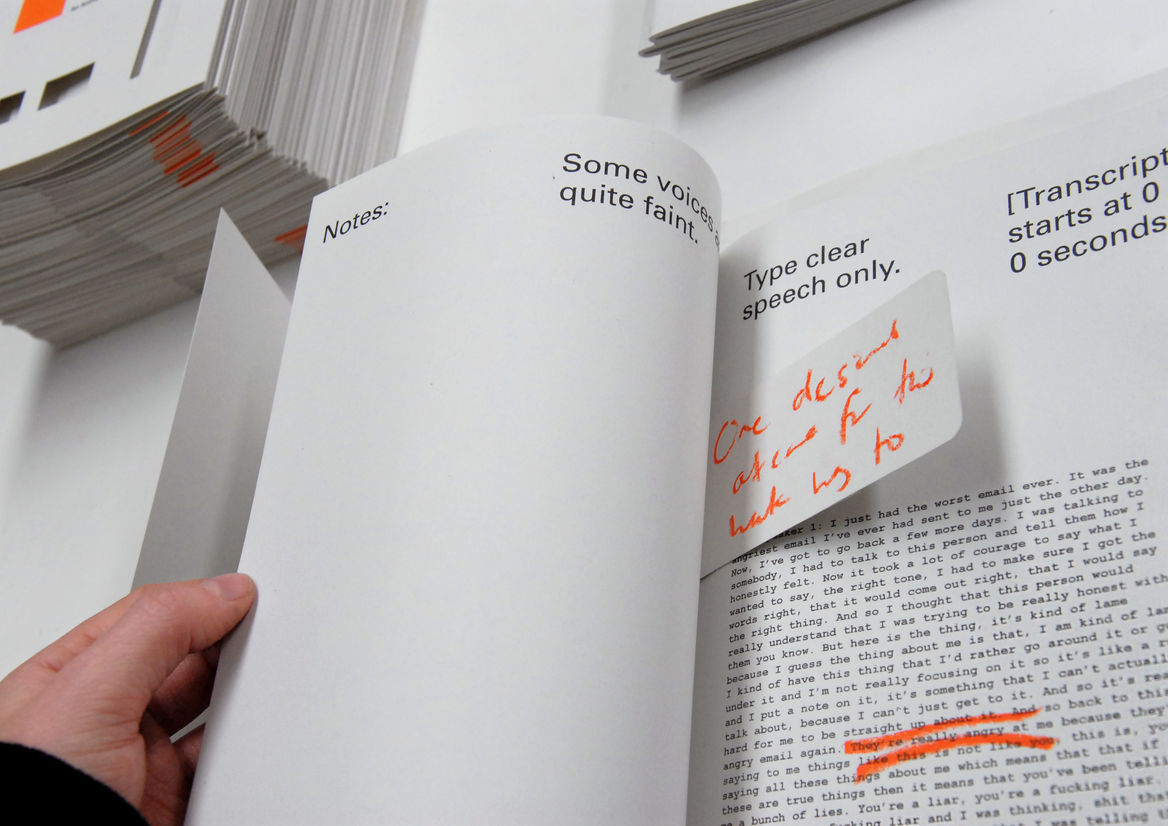 Notes:
Some voices
quite faint.
Type clear
speech only.
[Transcript
starts at 0
0 seconds
One
to
to
1: I just had the worst email ever. It was the
angriest email I've ever had sent to me just the other day.
Now, I've got to go back a few more days. I was talking to
somebody, I had to talk to this person and tell them how I
honestly felt. Now it took a lot of courage to say what I
wanted to say, the right tone, I had to make sure I got the
words right, that it would come out right, that I would say
the right thing. And so I thought that this person would
really understand that I was trying to be really honest with
them you know. But here is the thing, it's kind of lame
because I guess the thing about me is that, I am kind of
I kind of have this thing that I'd rather go around it or
under it and I'm not really focusing on it so it's like a
and I put a note on it, it's something that I can't
talk about, because I can^t just get to it. And so it's
hard for me to be straight up about it. And so back to
angry email again. They're really angry at me because they
saying to me things like this is not like you, this is,
saying all these things about me which means that that if
these are true things then it means that you've been
me a bunch of lies. You're a liar, you're a fucking liar.
fucking liar and I was thinking, shit
I was telling